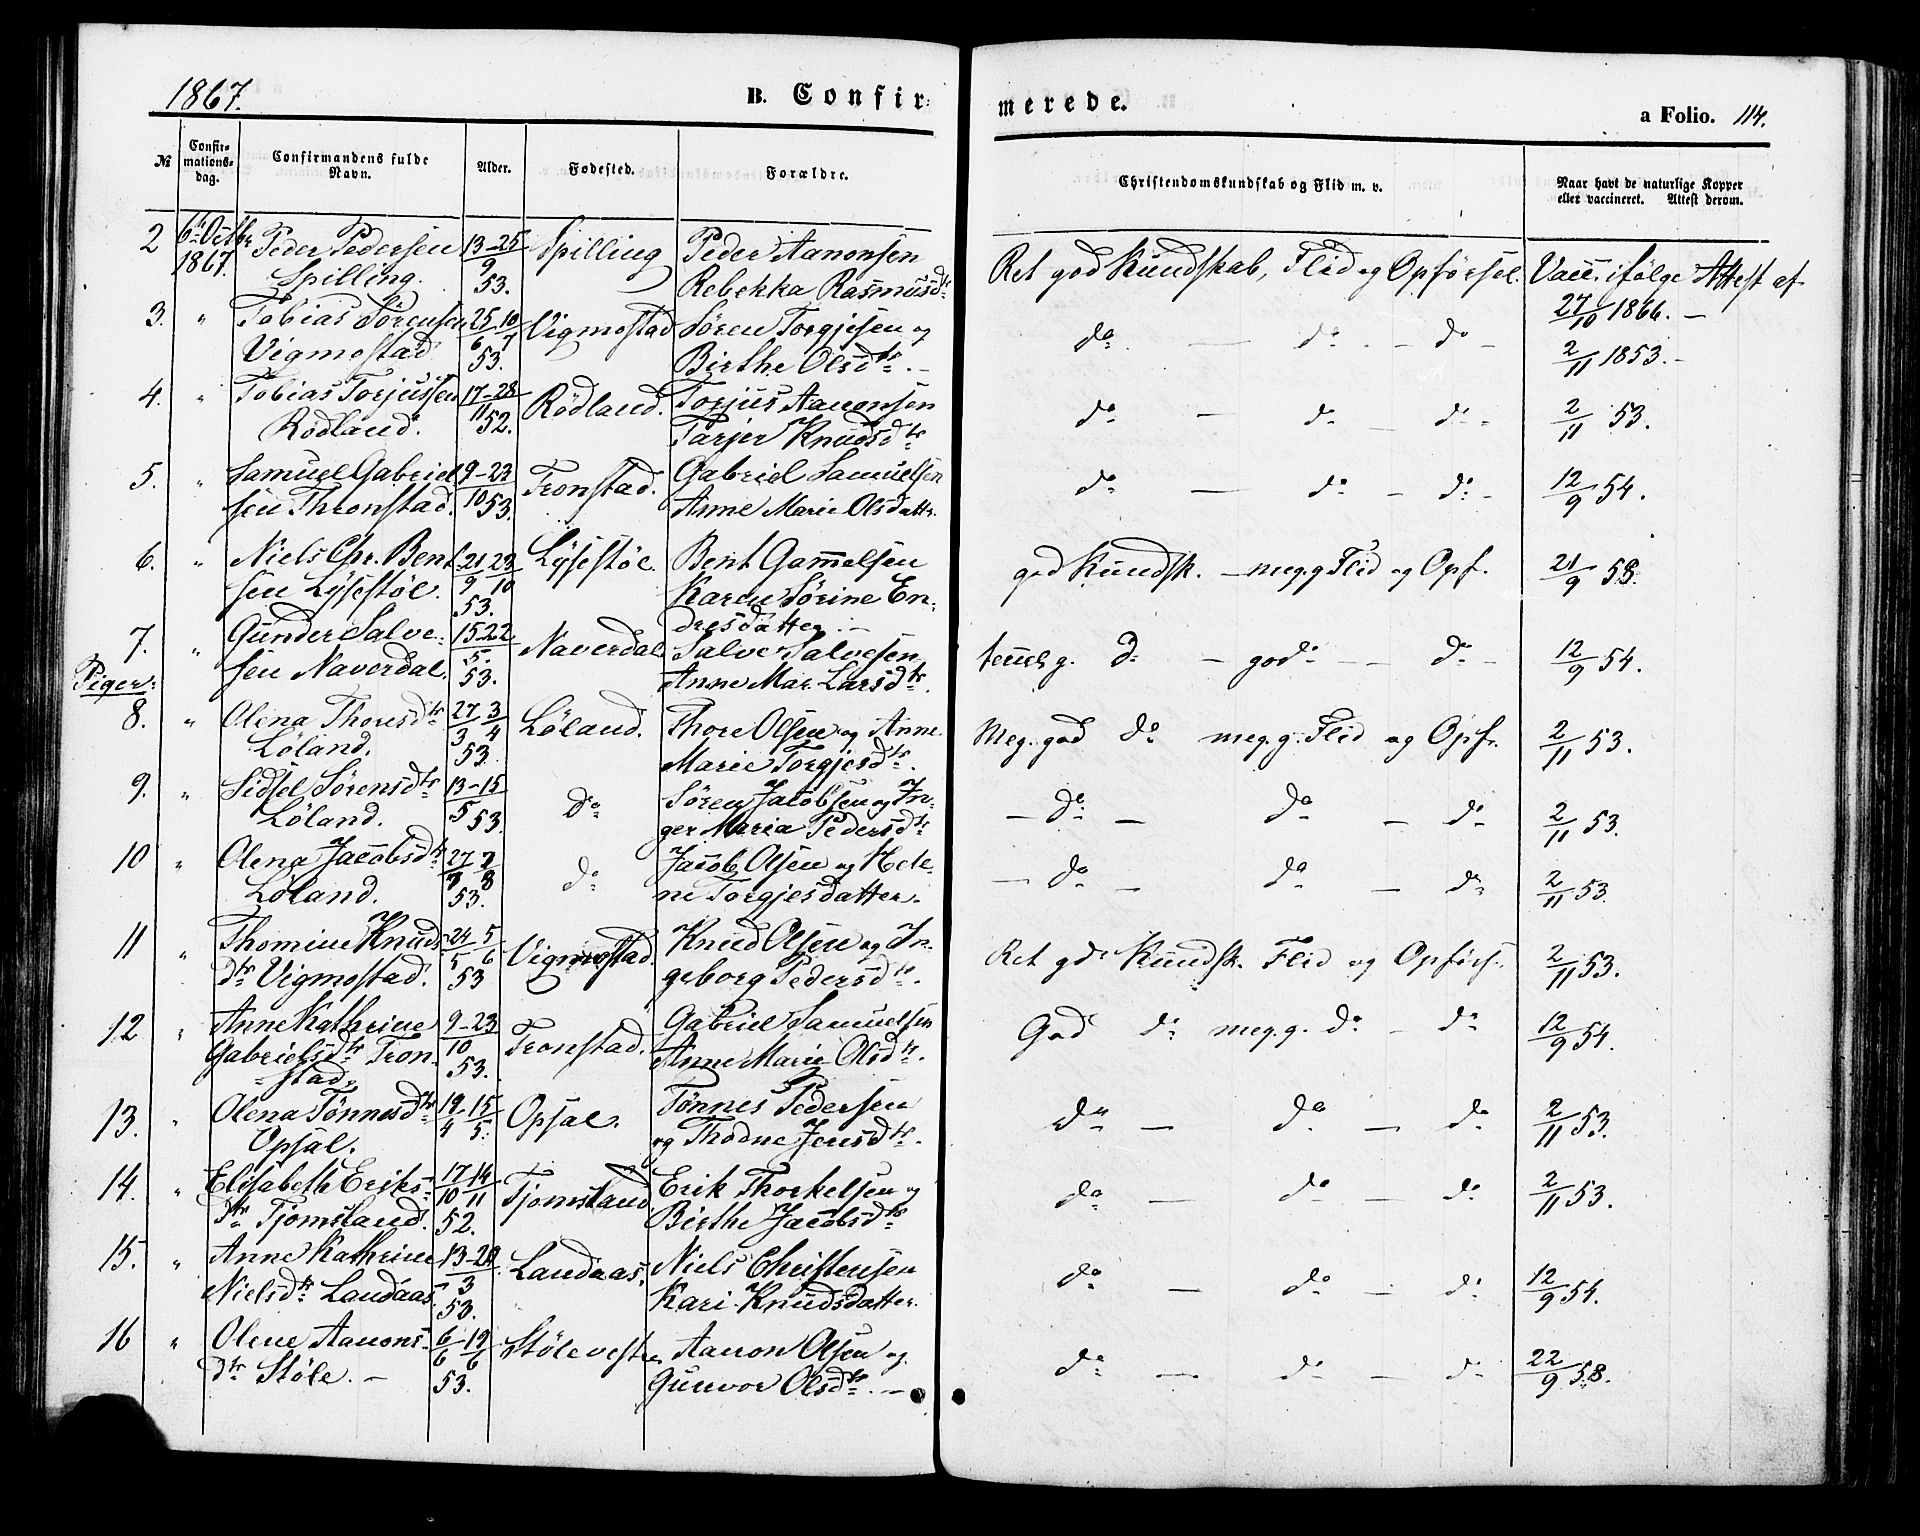 1867.
B. Confir-
merede.
a Folio. 114.
№
Confir-
mations-
dag.
Confirmandens fulde
Navn.
Alder.
Fødested.
Forældre.
Christendomskundskab og Flid m. v.
Naar havt de naturlige Kopper
eller vaccineret. Attest derom.
2 6te Octbr Peder Pedersen 13-25 Spilling Peder Aanonsen Ret god Kundskab, Flid og Opførsel. Vacc. ifølge Attest af
1867. Spilling. 9 53. Rebekka Rasmusdtr 27/10 1866. —
3. " Tobias Sørensen 25/6 10/7 Vigmostad Søren Torgjesen og do — do — do — 2/11 1853. —
Vigmostad 53. Birthe Olsdtr. —
4. " Tobias Torjussen 17-28 Rødland. Torjus Aanonsen do — do — do — 2/11 53.
Rødland. 11 52. Tarjer Knudsdtr
5. " Samuel Gabriel 9-23 Tronstad. Gabriel Samuelsen do — do — do — 12/9 54.
sen Thronstad. 10 53. Anne Marie Olsdattr.
6. " Niels Chr. Bent 21/9 23/10 Lysestøl. Bent Gammelsen god Kundsk. — meg. g Flid og Opf. 21/9 58.
sen Lysestøl. 53. Karen Sørine En-
dresdatter. —
7. " Gunder Salve- 15 22 Naverdal. Salve Salvesen do — god — do — 12/9 54.
sen Naverdal. 5. 53. Anne Mar. Larsdtr.
Piger:
8. " Olena Thoresdtr 27/3 3/4 Løland. Thore Olsen og Anne Meg. god do meg. g. Flid og Opf. 2/11 53.
Løland. 53. Marie Torgjesdtr.
9. " Sidsel Sørensdtr 13-15 do Søren Jacobsen og In- — do — do — do 2/11 53.
Løland. 5 53. ger Maria Pedersdtr
10 " Olena Jacobsdtr 27 do Jacob Olsen og Hele- — do — do — do 2/11 53.
Løland. 53. ne Torgjesdatter.
11 " Thomine Knuds- 24/5 5/6 Vigmostad. Knud Olsen og In- Ret gd Kundsk. Flid og Opførs. 2/11 53.
dtr Vigmostad. 53 geborg Pedersdtr.
12 " Anne Kathrine 9-23 Tronstad. Gabriel Samuelsen God do meg. g. do — do 12/9 54.
Gabrielsdtr Tron- 10 Anne Marie Olsdtr.
stad. 53.
13. " Olena Tønnesdtr 19/4 15/5 Opsal. Tønnes Pedersen do — do — do 2/11 53.
Opsal. og Thodne Jensdtr.
14. " Elisabeth Eriks- 17/10 14/11 Tjomsland Erik Thorkelsen og do — do — do 2/11 53.
dtr Tjomsland. 52. Birthe Jacobsdtr
15. " Anne Kathrine 13-20 Landaas. Niels Christensen do — do — do 12/9 54.
Nielsdtr Landaas 3 53. Kari Knudsdatter.
16 " Olene Aanons- 6/6 19/6 Støle vestre Aanon Olsen og do — do — do 22/9 58.
dtr Støle. — 53. Gunvor Olsdtr. —